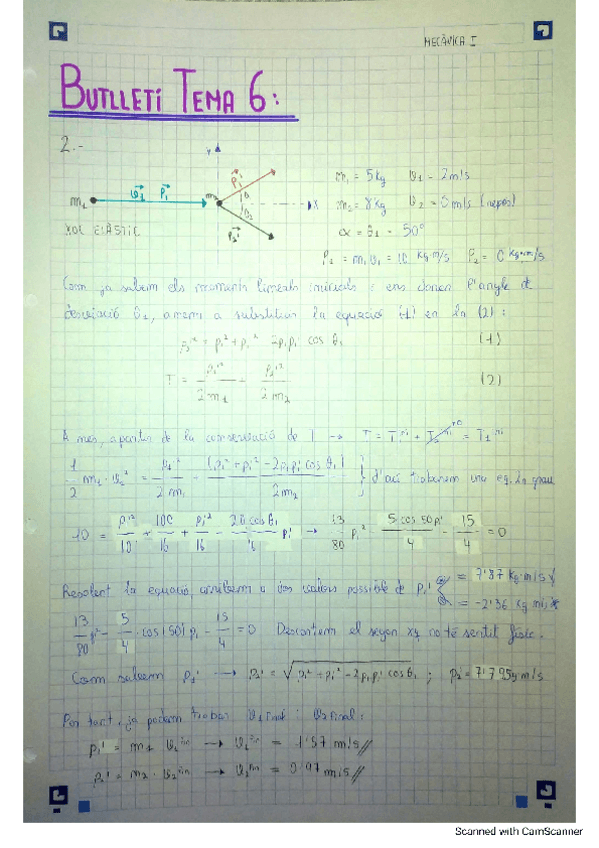 MECÀNICA I
BUTLLETÍ TEMA 6:
2.-
m₁ = 5kg v₁ = 2m/s
m₂ = 8kg v₂ = 0m/s (repòs)
m₁ v₁ p₁ p₁' θ₁ θ₂ p₂' X
XOC ELÀSTIC
α = θ₁ = 50°
p₁ = m₁v₁ = 10 kg·m/s p₂ = 0 kg·m/s
Com ja sabem els moments lineals inicials i ens donen l'angle de
desviació θ₁, anem a substituir la equació (1) en la (2):
p₂'² = p₁² + p₁'² - 2p₁p₁' cos θ₁ (1)
T = p₁'²/2m₁ + p₂'²/2m₂ (2)
A més, a partir de la conservació de T → T = T₁ⁱⁿⁱ + T₂ⁱⁿⁱ = T₁ⁱⁿⁱ
1/2 m₁·v₁² = p₁'²/2m₁ + (p₁² + p₁'² - 2p₁p₁' cos θ₁)/2m₂ } d'ací trobarem una eq. 2n grau
10 = p₁'²/10 + 100/16 + p₁'²/16 - 20 cos θ₁/16 p₁' → 13/80 p₁'² - 5 cos 50 p₁'/4 - 15/4 = 0
Resolent la equació, arribem a dos valors possible de p₁' = 7'87 kg·m/s
= -2'36 kg m/s
13/80 p₁'² - 5/4 · cos(50) p₁' - 15/4 = 0 Descartem el segon xq no té sentit físic.
Com sabem p₁' → p₂' = √p₁² + p₁'² - 2p₁p₁' cos θ₁ ; p₂' =
Per tant, ja podem trobar v₁ final i v₂ final:
p₁' = m₁ v₁ᶠⁱⁿ → v₁ᶠⁱⁿ = 1'57 m/s //
p₂' = m₂·v₂ᶠⁱⁿ → v₂ᶠⁱⁿ = 0'97 m/s //
Scanned with CamScanner